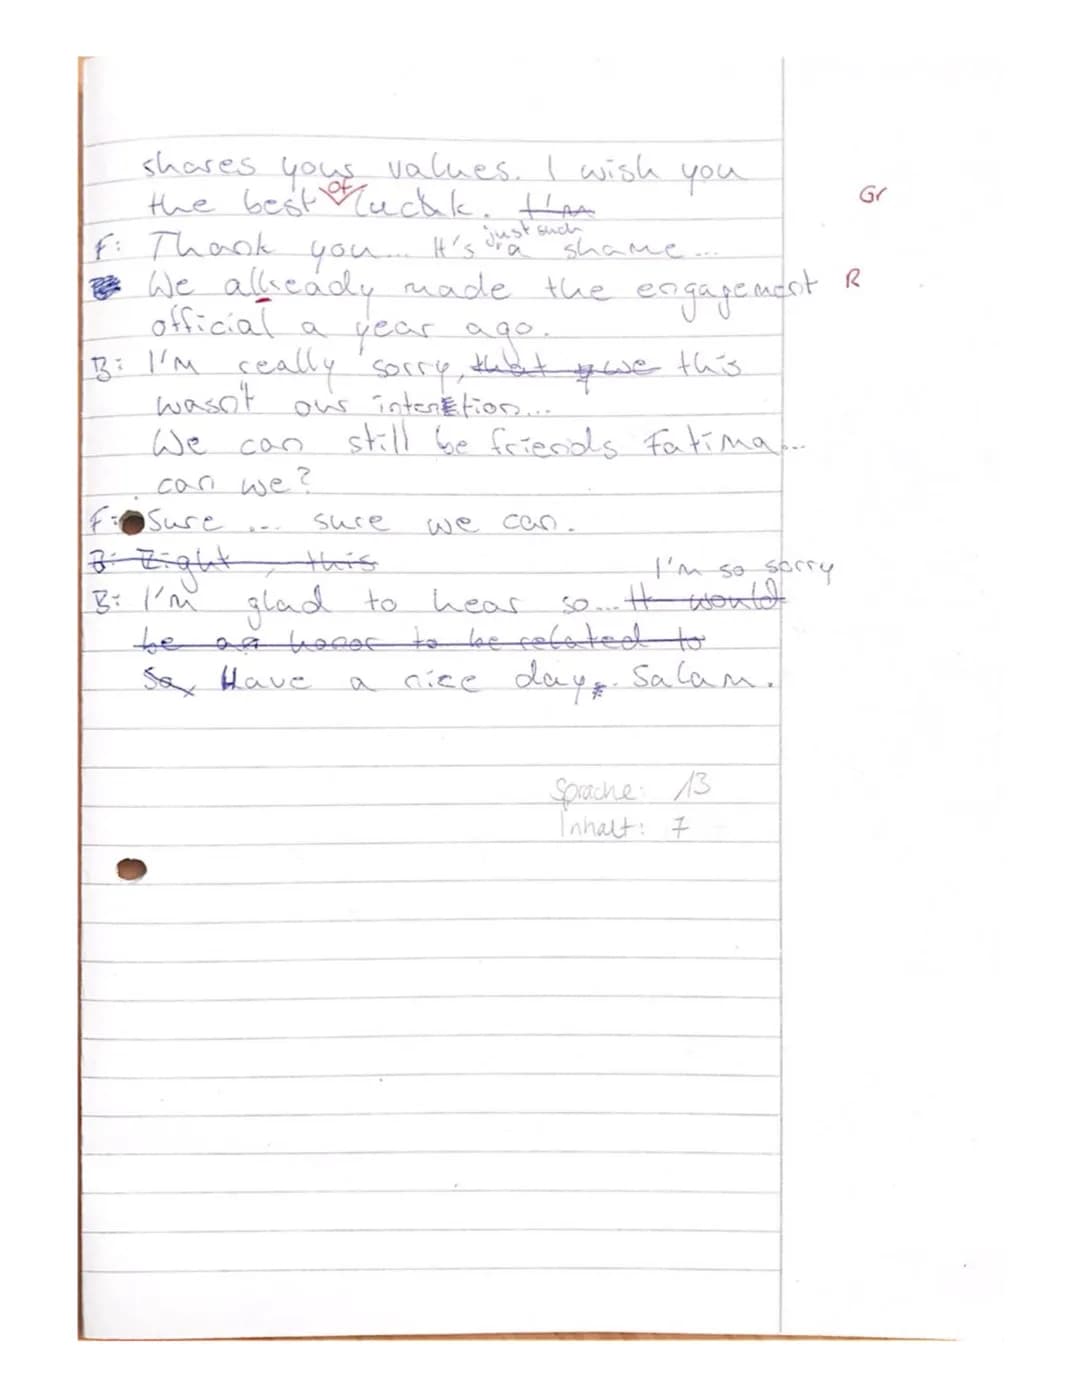 shares your values. I wish you
the best of luck. I'm
Gr
F: Thank you... It's just such a shame...
We allready made the engagement
R
official a year ago.
B: I'm really sorry, that we this
wasn't our intention...
We can still be friends Fatima...
can we?
F: Sure ... sure we can.
B: Right, this
I'm so sorry
B: I'm glad to hear so... It would
be an honor to be related to
Have a nice day. Salam.
Sprache: 13
Inhalt: 7